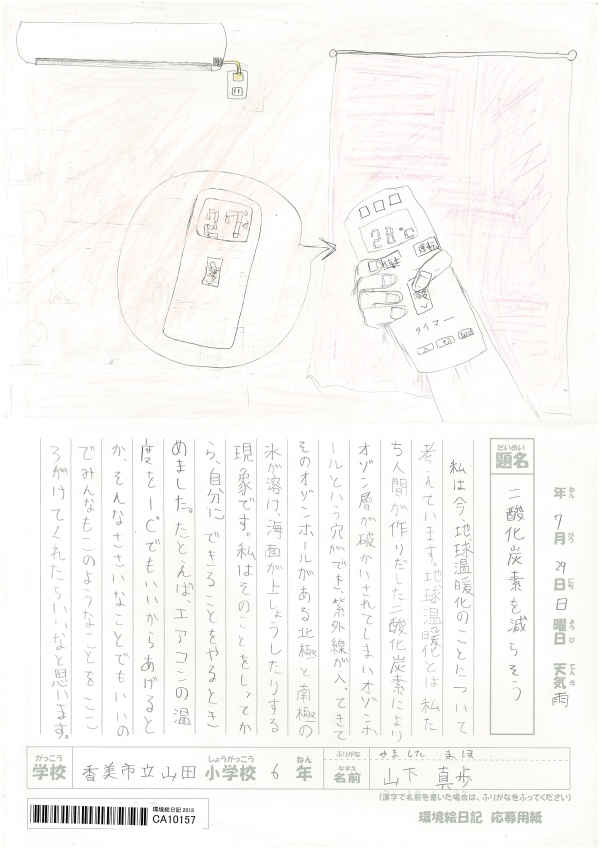 28℃
運転
タイマー
題名
だいめい
二酸化炭素を減らそう
年 7月 29日 日曜日 天気 雨
ねん がつ にち ようび てんき
私は今、地球温暖化のことについて
考えています。地球温暖化とは、私た
ち人間が作りだした二酸化炭素により
オゾン層が破かいされてしまいオゾンホ
ールという穴ができ、紫外線が入ってきて
そのオゾンホールがある北極と南極の
氷が溶け、海面が上しょうしたりする
現象です。私はそのことをしってか
ら、自分にできることをやるときめ
めました。たとえば、エアコンの温
度を1℃でもいいからあげると
か、そんなささいなことでもいいの
でみんなもこのようなことをここ
ろがけてくれたらいいなと思います。
がっこう しょうがっこう ねん
学校 香美市立山田 小学校 6 年
ふりがな やました まほ
なまえ
名前 山下 真歩
(漢字で名前を書いた場合は、ふりがなをふってください)
環境絵日記 2018
CA10157
環境絵日記 応募用紙